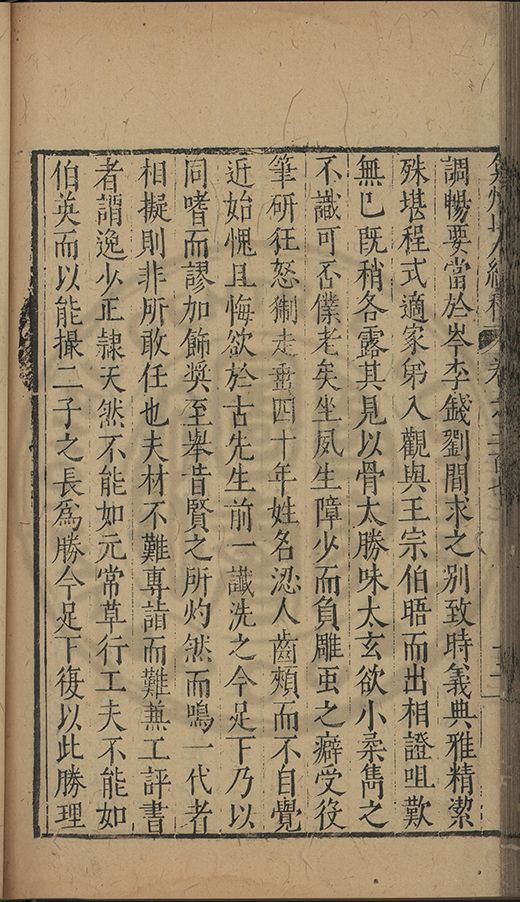 弇州山人續稿 卷之二百七
調暢要當於岑李錢劉間求之别致時義典雅精潔
殊堪程式適家弟入觀與王宗伯晤而出相證咀歎
無已既稍各露其見以骨太勝味太玄欲小柔雋之
不識可否僕老矣坐夙生障少而負雕虫之癖受役
筆硏狂怒猘走踰四十年姓名涊人齒頰而不自覺
近始愧且悔欲於古先生前一讖洗之今足下乃以
同嗜而謬加飾奬至舉昔賢之所灼然而鳴一代者
相擬則非所敢任也夫材不難專詣而難兼工評書
者謂逸少正隷天然不能如元常草行工夫不能如
伯英而以能撮二子之長爲勝今足下復以此勝理